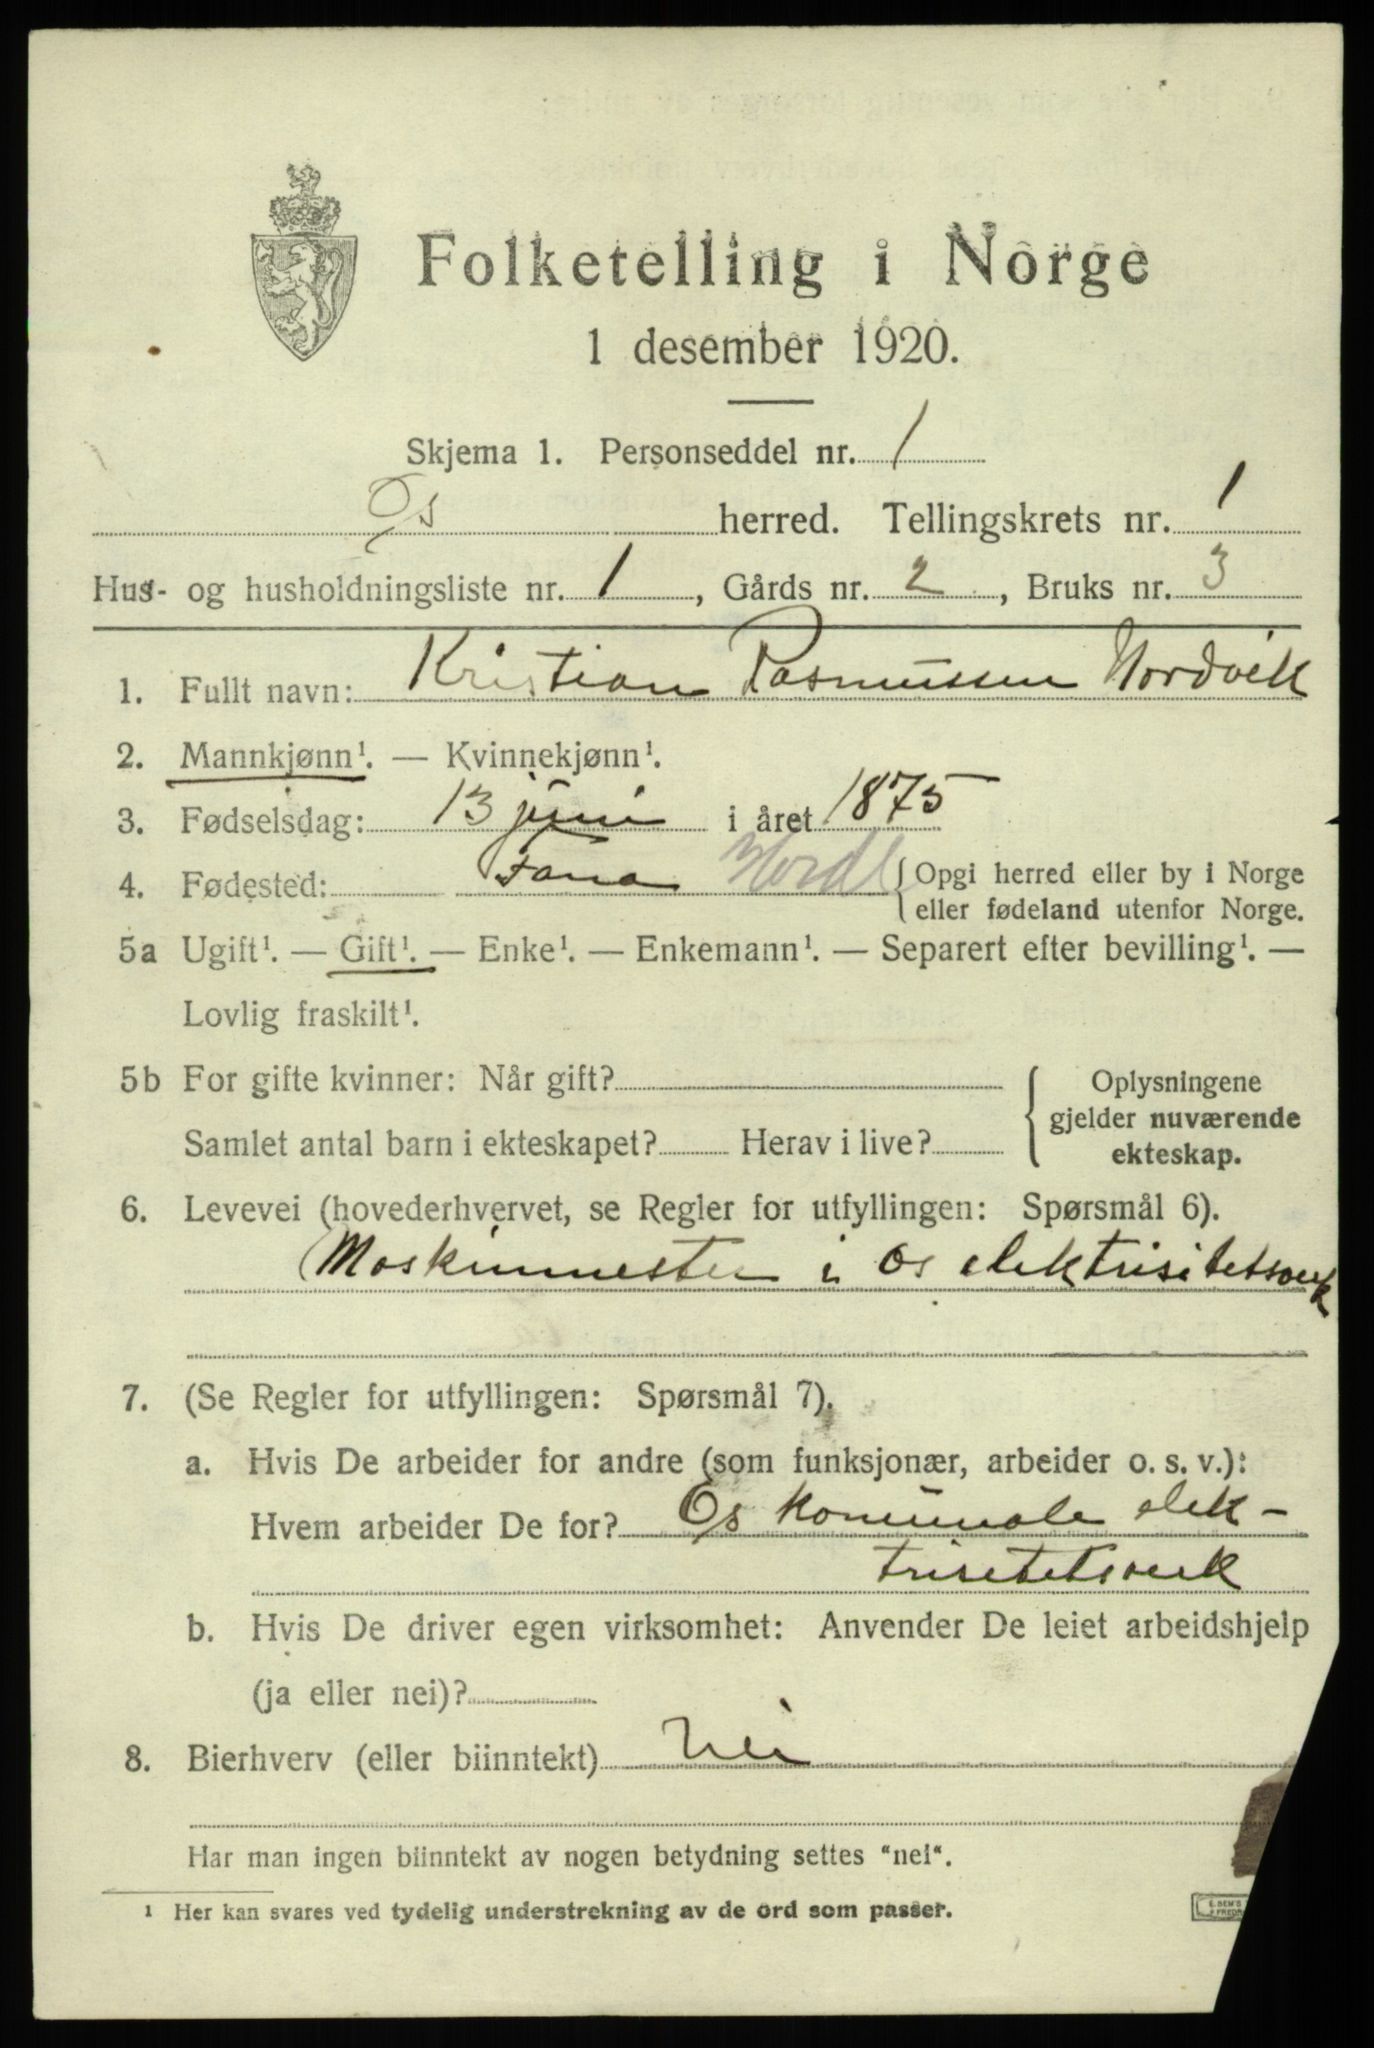 Folketelling i Norge
1 desember 1920.
Skjema 1. Personseddel nr. 1
Os herred. Tellingskrets nr. 1
Hus- og husholdningsliste nr. 1, Gårds nr. 2, Bruks nr. 3
1. Fullt navn: Kristian Rasmussen Nordvik
2. Mannkjønn¹. — Kvinnekjønn¹.
3. Fødselsdag: 13 juni i året 1875
4. Fødested: Fana Hordl { Opgi herred eller by i Norge
eller fødeland utenfor Norge.
5a Ugift¹. — Gift¹. — Enke¹. — Enkemann¹. — Separert efter bevilling¹. —
Lovlig fraskilt¹.
5b For gifte kvinner: Når gift? { Oplysningene
gjelder nuværende
Samlet antal barn i ekteskapet? Herav i live?
ekteskap.
6. Levevei (hovederhvervet, se Regler for utfyllingen: Spørsmål 6).
Maskinmester i Os elektrisitetsverk
7. (Se Regler for utfyllingen: Spørsmål 7).
a. Hvis De arbeider for andre (som funksjonær, arbeider o. s. v.):
Hvem arbeider De for? Os komunale elek-
trisitetsverk
b. Hvis De driver egen virksomhet: Anvender De leiet arbeidshjelp
(ja eller nei)?
8. Bierhverv (eller biinntekt) Nei
Har man ingen biinntekt av nogen betydning settes "nei".
1 Her kan svares ved tydelig understrekning av de ord som passer.